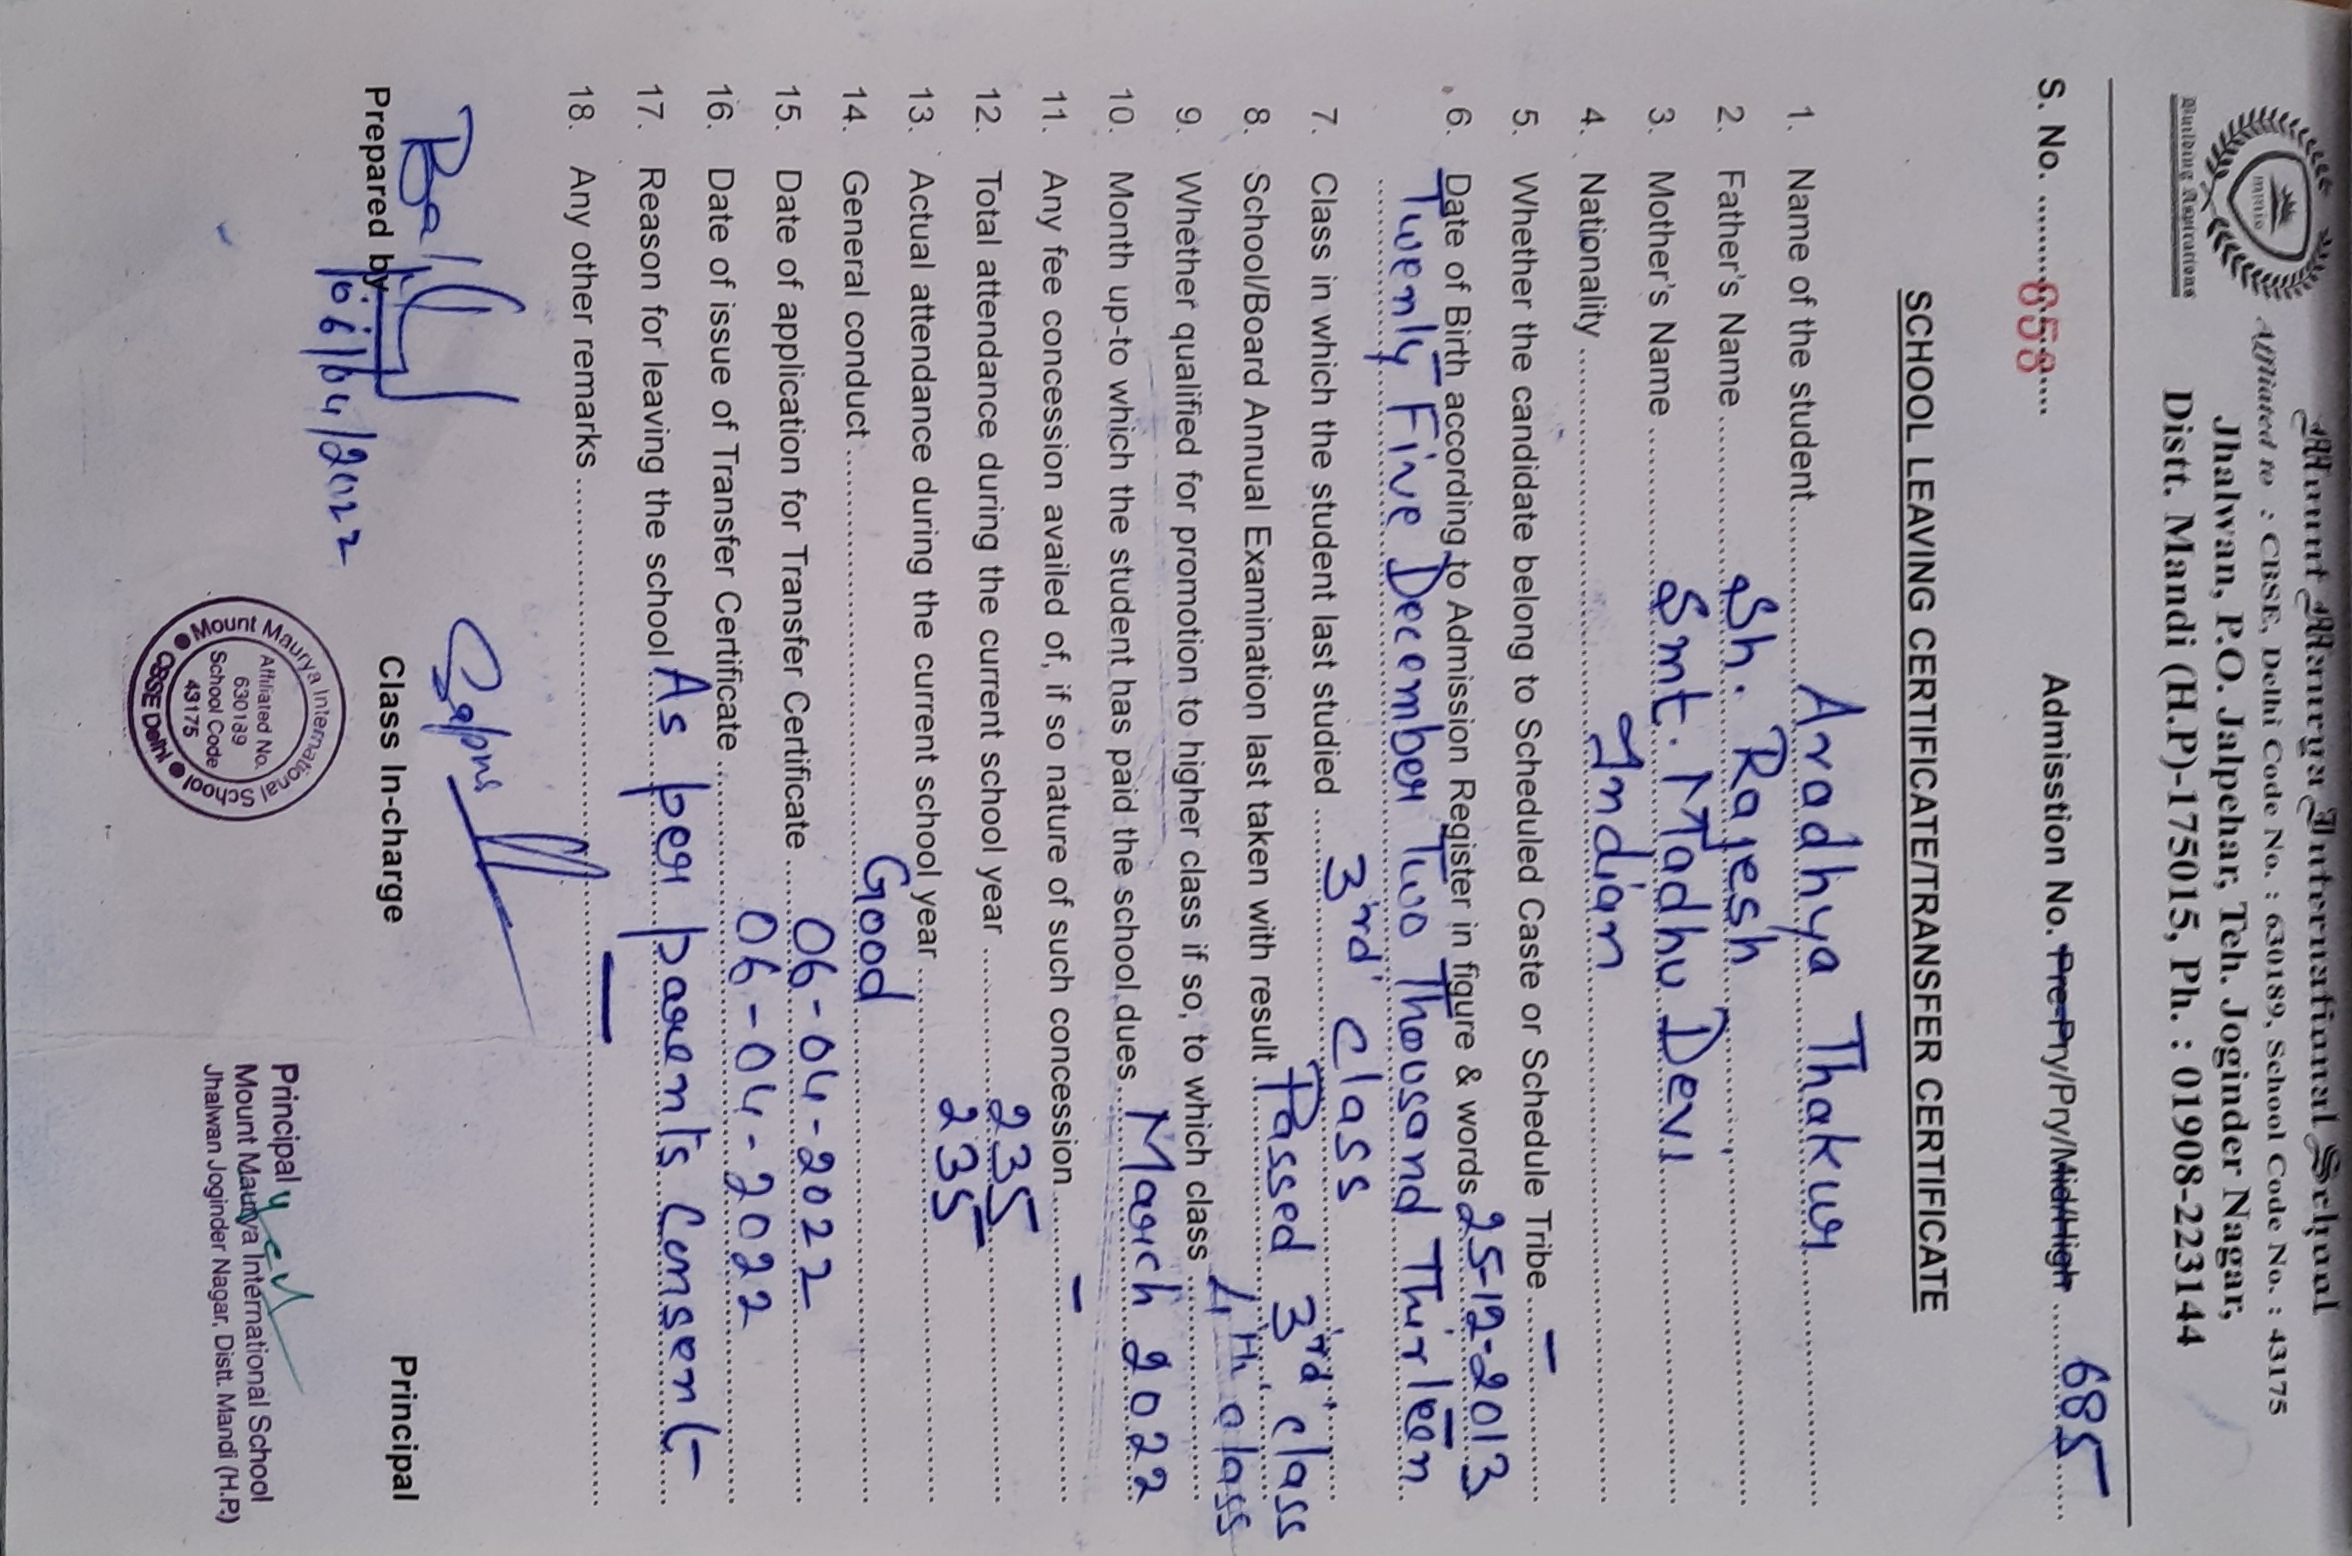 Mount Maurya International School
Affiliated to : CBSE, Delhi Code No. : 630189, School Code No. : 43175
Jhalwan, P.O. Jalpehar, Teh. Joginder Nagar,
Distt. Mandi (H.P)-175015, Ph. : 01908-223144
mmis
Building Aspirations
S. No. ............ 658 ....
Admisstion No. Pre-Pry/Pry/Mid/High ........ 685 ......
SCHOOL LEAVING CERTIFICATE/TRANSFER CERTIFICATE
1. Name of the student.................... Aradhya Thakur
2. Father's Name .................... Sh. Rajesh
3. Mother's Name .................... Smt. Madhu Devi
4. Nationality .................... Indian
5. Whether the candidate belong to Scheduled Caste or Schedule Tribe ...... –
6. Date of Birth according to Admission Register in figure & words 25-12-2013
Twenty Five December Two Thousand Thirteen
7. Class in which the student last studied .......... 3rd class
8. School/Board Annual Examination last taken with result .... Passed 3rd class
9. Whether qualified for promotion to higher class if so, to which class .... 4th class
10. Month up-to which the student has paid the school dues .... March 2022
11. Any fee concession availed of, if so nature of such concession .......... –
12. Total attendance during the current school year .......... 235
13. Actual attendance during the current school year .......... 235
14. General conduct .................... Good
15. Date of application for Transfer Certificate ...... 06-04-2022
16. Date of issue of Transfer Certificate .......... 06-04-2022
17. Reason for leaving the school As per parents Consent
18. Any other remarks .................... –
Prepared by
06/04/2022
Class In-charge
Sapna
Principal
Mount Maurya International School
Affiliated No.
630189
School Code
43175
CBSE Delhi
Principal
Mount Maurya International School
Jhalwan Joginder Nagar, Distt. Mandi (H.P.)